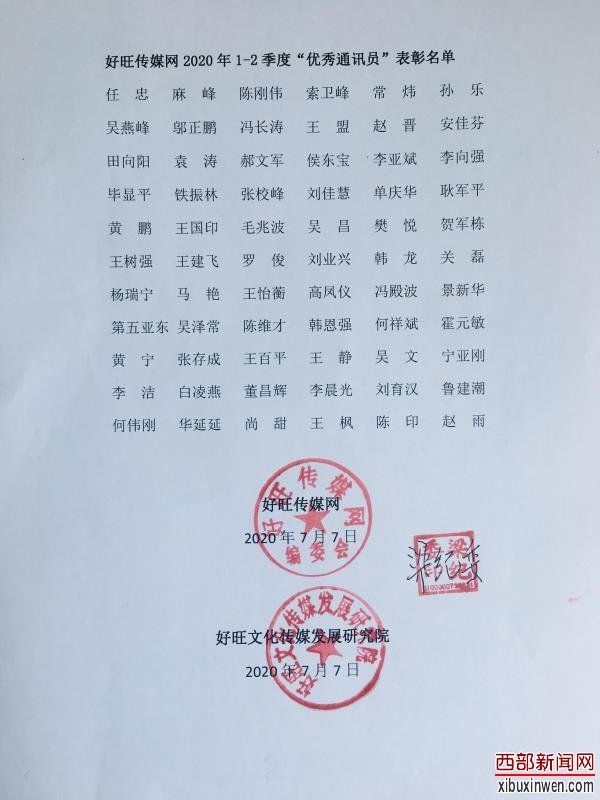 好旺传媒网2020年1-2季度“优秀通讯员”表彰名单
任 忠 麻 峰 陈刚伟 索卫峰 常 炜 孙 乐
吴燕峰 邬正鹏 冯长涛 王 盟 赵 晋 安佳芬
田向阳 袁 涛 郝文军 侯东宝 李亚斌 李向强
毕显平 铁振林 张校峰 刘佳慧 单庆华 耿军平
黄 鹏 王国印 毛兆波 吴 昌 樊 悦 贺军栋
王树强 王建飞 罗 俊 刘业兴 韩 龙 关 磊
杨瑞宁 马 艳 王怡蘅 高凤仪 冯殿波 景新华
第五亚东 吴泽常 陈维才 韩恩强 何祥斌 霍元敏
黄 宁 张存成 王百平 王 静 吴 文 宁亚刚
李 洁 白凌燕 董昌辉 李晨光 刘育汉 鲁建潮
何伟刚 华延延 尚 甜 王 枫 陈 印 赵 雨
好旺传媒网
好旺传媒网
2020年7月7日
编委会
梁纪
印
好旺文化传媒发展研究院
好旺文化传媒发展研究院
2020年7月7日
西部新闻网
xibuxinwen.com